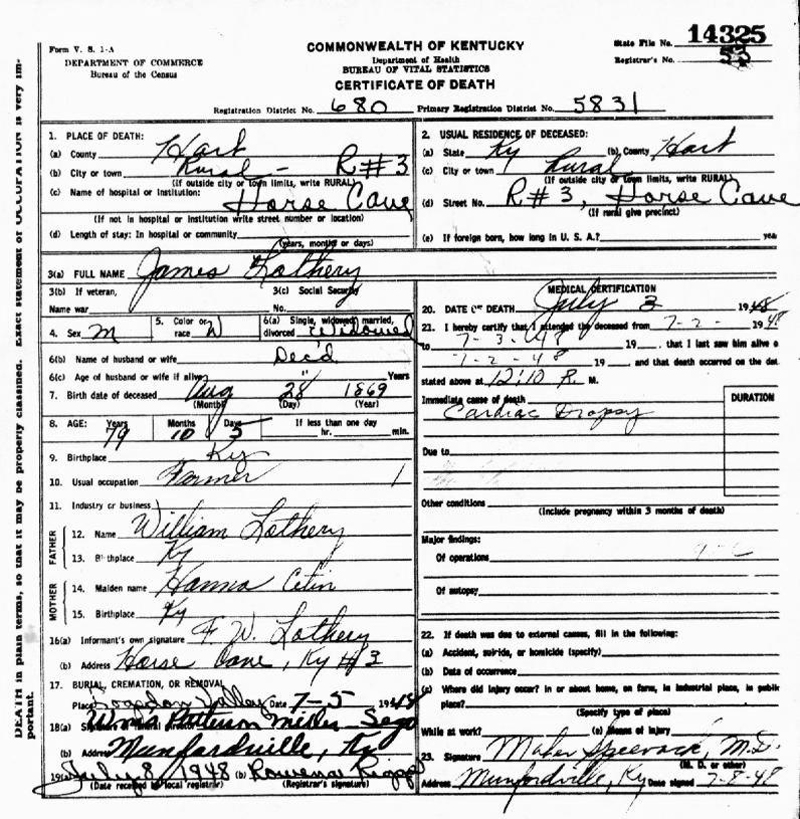 Form V. S. 1-A
DEPARTMENT OF COMMERCE
Bureau of the Census
COMMONWEALTH OF KENTUCKY
Department of Health
BUREAU OF VITAL STATISTICS
CERTIFICATE OF DEATH
State File No. 14325
Registrar's No. 53
Registration District No. 680 Primary Registration District No. 5831
1. PLACE OF DEATH:
(a) County Hart
(b) City or town Rural - R#3
(If outside city or town limits, write RURAL)
(c) Name of hospital or institution: Horse Cave
(If not in hospital or institution write street number or location)
(d) Length of stay: In hospital or community
(years, months or days)
2. USUAL RESIDENCE OF DECEASED:
(a) State Ky (b) County Hart
(c) City or town Rural
(If outside city or town limits, write RURAL)
(d) Street No. R#3, Horse Cave
(If rural give precinct)
(e) If foreign born, how long in U. S. A.? yea
3(a) FULL NAME James Lothery
3(b) If veteran, 3(c) Social Security
Name war No.
4. Sex M 5. Color or race W 6(a) Single, widowed, married, divorced Widowed
6(b) Name of husband or wife Dec'd
6(c) Age of husband or wife if alive " Years
7. Birth date of deceased Aug 28 1869
(Month) (Day) (Year)
8. AGE: Years 79 Months 10 Days 5 If less than one day
hr. min.
9. Birthplace Ky
10. Usual occupation Farmer 1
11. Industry or business
FATHER
12. Name William Lothery
13. Birthplace Ky
MOTHER
14. Maiden name Hanna
15. Birthplace Ky
16(a) Informant's own signature F. W. Lothery
(b) Address Horse Cave, Ky #3
17. BURIAL, CREMATION, OR REMOVAL
Place Logsdon Valley Date 7-5 1948
18(a) Signature of funeral director
(b) Address Munfordville, Ky
19(a) July 8, 1948 (b) Rowena
(Date received by local registrar) (Registrar's signature)
MEDICAL CERTIFICATION
20. DATE OF DEATH July 3 1948
21. I hereby certify that I attended the deceased from 7-2- 1948
to 7-3-48 19 , that I last saw him alive o
7-2-48 19 and that death occurred on the dat
stated above at 12:10 P. M.
Immediate cause of death
Cardiac Dropsy
DURATION
Due to
Other conditions
(Include pregnancy within 3 months of death)
Major findings:
Of operations
Of autopsy
22. If death was due to external causes, fill in the following:
(a) Accident, suicide, or homicide (specify)
(b) Date of occurrence
(c) Where did injury occur? In or about home, on farm, in industrial place, in public
place?
(Specify type of place)
While at work? (e) Means of injury
23. Signature Maher Speevack, M.D.
(M. D. or other)
Address Munfordville, Ky Date signed 7-8-48
DEATH in plain terms, so that it may be properly classified. Exact statement of OCCUPATION is very im-
portant.